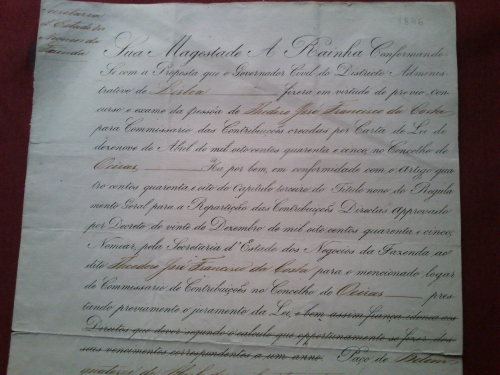 Secretaria
d'Estado dos
Negocios da
Fazenda
1846
Sua Magestade A Rainha Conformando
Se com a Proposta que o Governador Civil do Districto Adminis
trativo de Lisboa fizera em virtude do previo con
curso e exame da pessôa de Theodoro José Francisco da Costa
para Commissario das Contribuições creadas por Carta de Lei de
dezenove de Abril de mil oito centos quarenta e cinco, no Concelho de
Oeiras, Ha por bem, em conformidade com o Artigo qua
tro centos quarenta e oito do Capitulo terceiro do Titulo nono do Regula
mento Geral para a Repartição das Contribuições Directas Approvado
por Decreto de vinte de Dezembro de mil oito centos quarenta e cinco,
Nomiar, pela Secretaria d'Estado dos Negocios da Fazenda ao
dito Theodoro José Francisco da Costa para o mencionado logar
de Commissario de Contribuições no Concelho de Oeiras pres
tando previamente o juramento da Lei, e bem assim fiança idonea aos
Direitos que dever segundo o calculo que opportunamente se fizer dos
seus vencimentos correspondentes a um anno. Paço de Belem